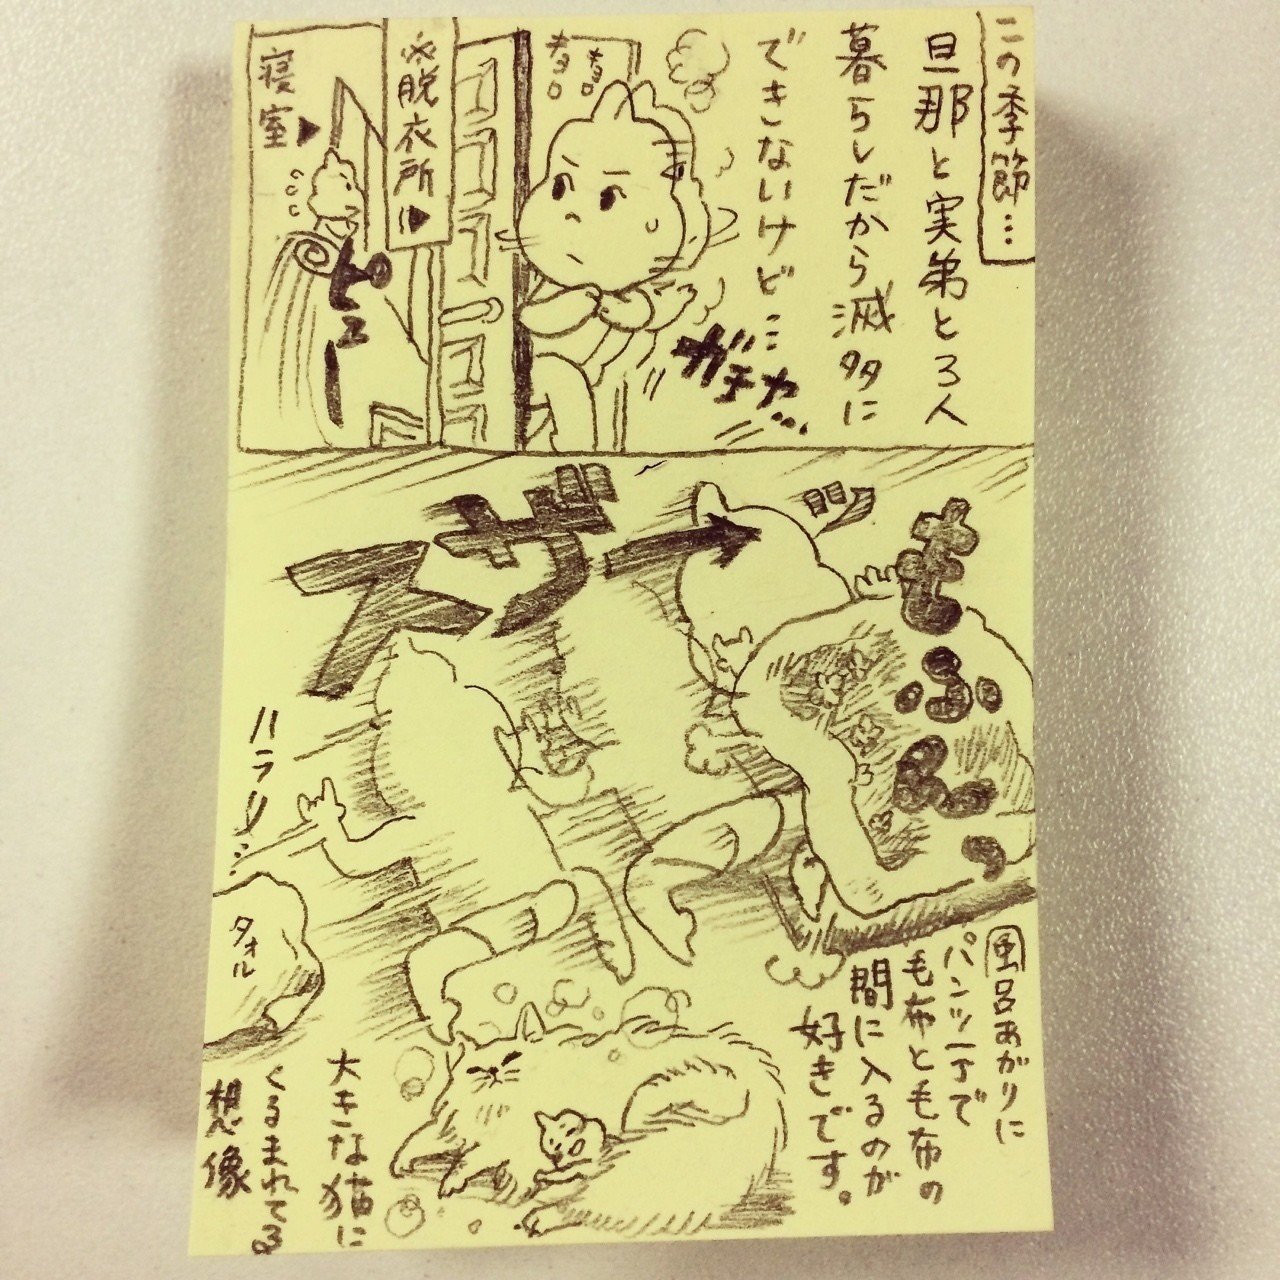 この季節…
旦那と実弟と3人
暮らしだから滅多に
できないけど…
ガチャ…
※脱衣所
寝室
ピュー
スザーッ
もふんっ
ハラリ…
タオル
風呂あがりに
パンツ一丁で
毛布と毛布の
間に入るのが
好きです。
大きな猫に
くるまれてる
想像